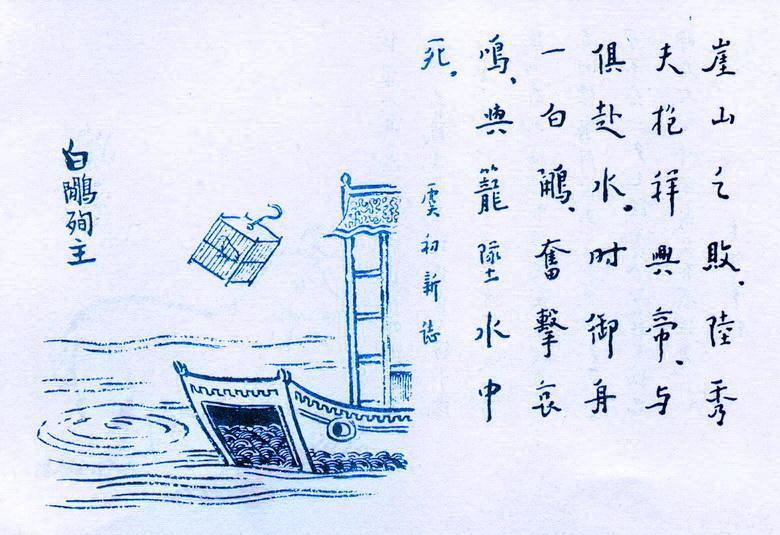 崖山之敗、陸秀
夫抱祥興帝、与
俱赴水。时御舟
一白鷳、奮擊哀
鳴、與籠墜水中
死。
虞初新誌
白鷳殉主